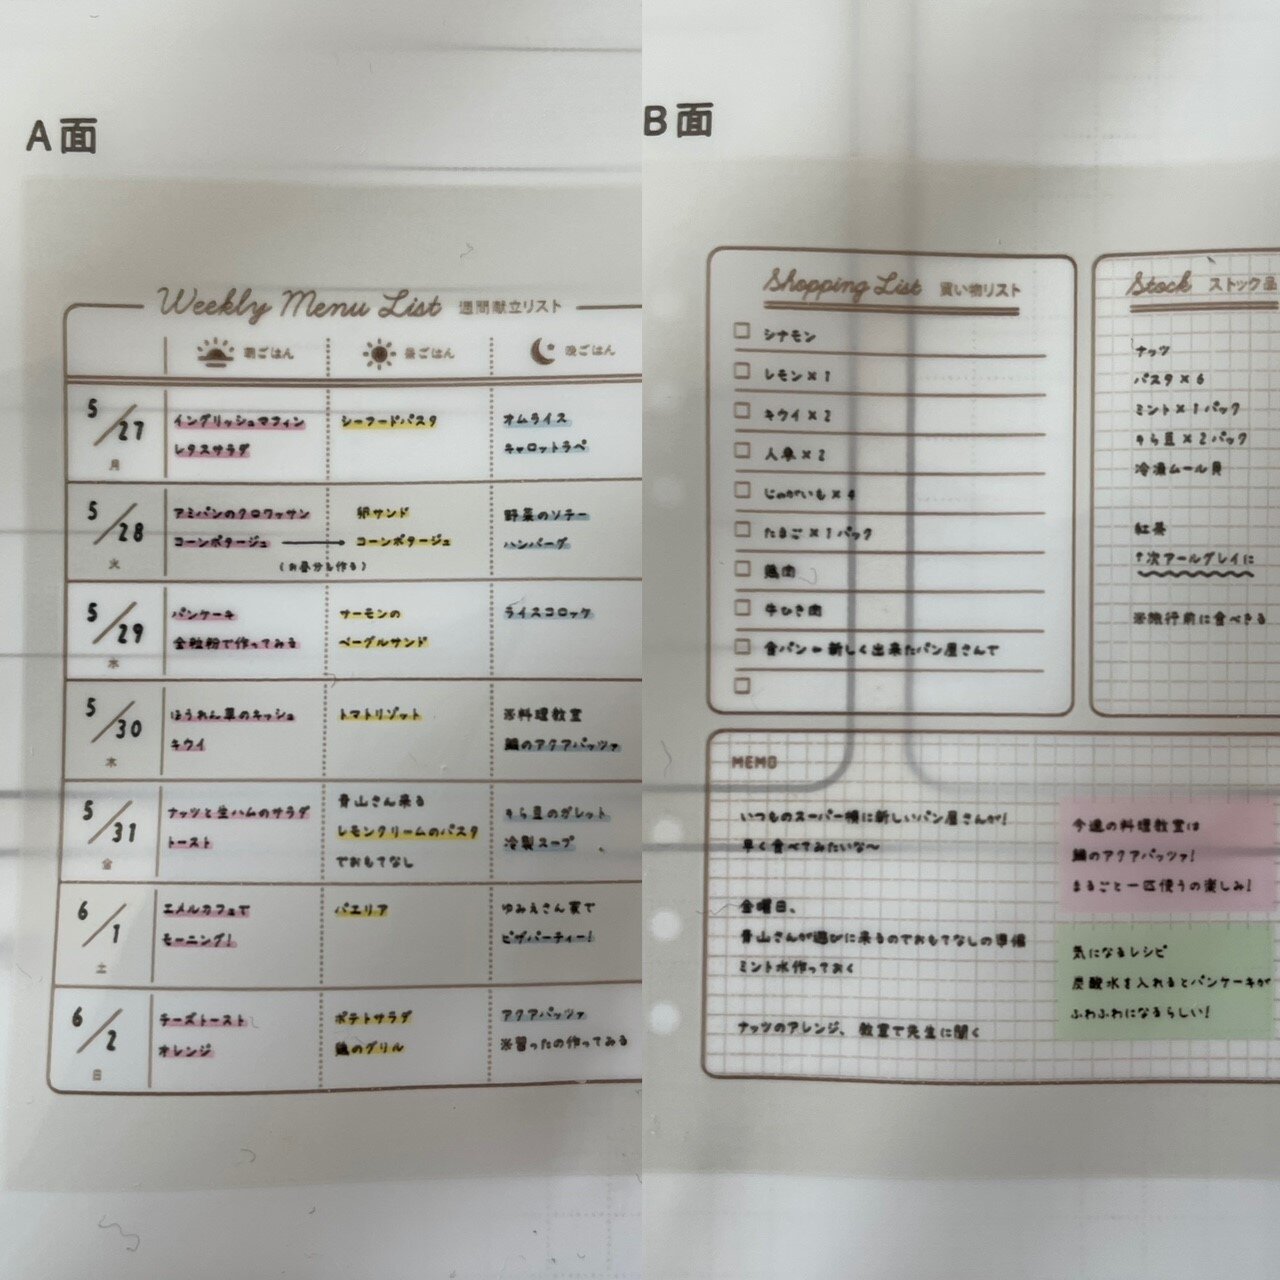 A面
Weekly Menu List 週間献立リスト
朝ごはん 昼ごはん 晩ごはん
5/27 月
イングリッシュマフィン
レタスサラダ
シーフードパスタ
オムライス
キャロットラペ
5/28 火
アミパンのクロワッサン
コーンポタージュ
(お昼分も作る)
卵サンド
コーンポタージュ
野菜のソテー
ハンバーグ
5/29 水
パンケーキ
全粒粉で作ってみる
サーモンの
ベーグルサンド
ライスコロッケ
5/30 木
ほうれん草のキッシュ
キウイ
トマトリゾット
※料理教室
鯛のアクアパッツァ
5/31 金
ナッツと生ハムのサラダ
トースト
青山さん来る
レモンクリームのパスタ
でおもてなし
そら豆のガレット
冷製スープ
6/1 土
エメルカフェで
モーニング!
パエリア
ゆみえさん家で
ピザパーティー!
6/2 日
チーズトースト
オレンジ
ポテトサラダ
鶏のグリル
アクアパッツァ
※習ったの作ってみる
B面
Shopping List 買い物リスト
シナモン
レモン×1
キウイ×2
人参×2
じゃがいも×4
たまご×1パック
鶏肉
牛ひき肉
食パン←新しく出来たパン屋さんで
Stock ストック品
ナッツ
パスタ×6
ミント×1パック
そら豆×2パック
冷凍ムール貝
紅茶
↑次アールグレイに
※旅行前に食べきる
MEMO
いつものスーパー横に新しいパン屋さんが!
早く食べてみたいな〜
金曜日、
青山さんが遊びに来るのでおもてなしの準備
ミント水作っておく
ナッツのアレンジ、教室で先生に聞く
今週の料理教室は
鯛のアクアパッツァ!
まるごと一匹使うの楽しみ!
気になるレシピ
炭酸水を入れるとパンケーキが
ふわふわになるらしい!